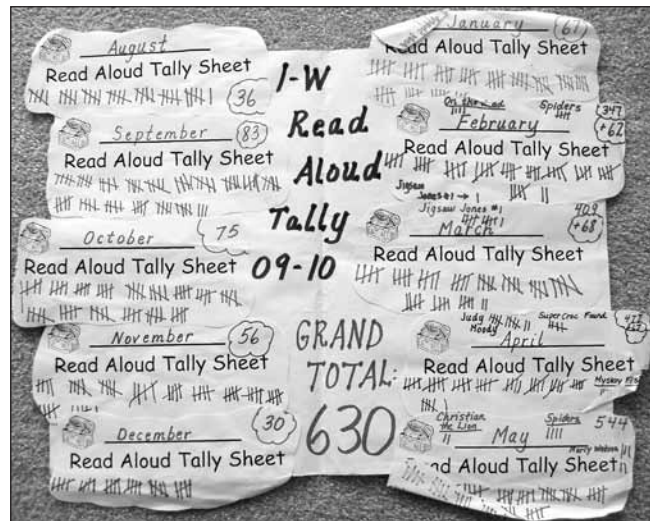 August
Read Aloud Tally Sheet
36
September
83
Read Aloud Tally Sheet
October
75
Read Aloud Tally Sheet
November
56
Read Aloud Tally Sheet
December
30
Read Aloud Tally Sheet
1-W
Read
Aloud
Tally
09-10
GRAND
TOTAL:
630
January
67
Read Aloud Tally Sheet
Spiders
347
+62
February
Read Aloud Tally Sheet
Jigsaw
Jones #1 → 1
Jigsaw Jones #1
409
+68
March
Read Aloud Tally Sheet
Judy
Moody
Super Croc Found
477
April
Read Aloud Tally Sheet
Mystery
Christian
the Lion
Spiders
544
May
Read Aloud Tally Sheet